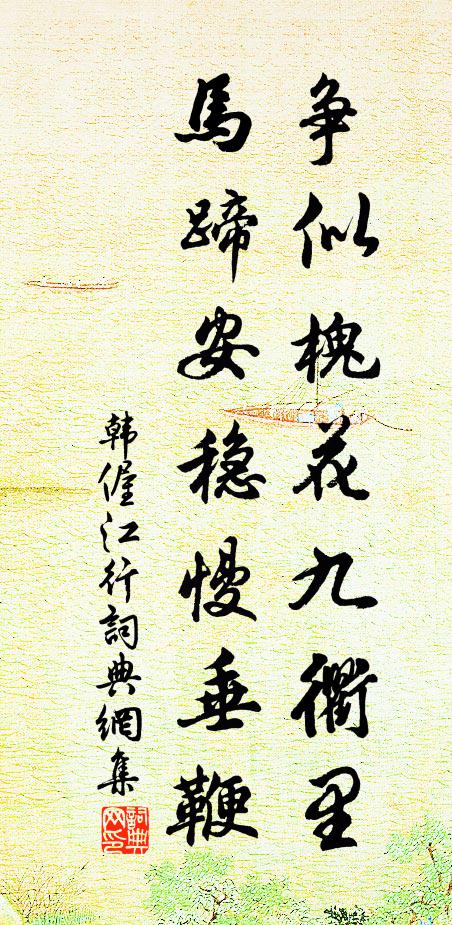 争似槐花九衢里
马蹄安稳慢垂鞭
韩偓江行词典网集
词典网印